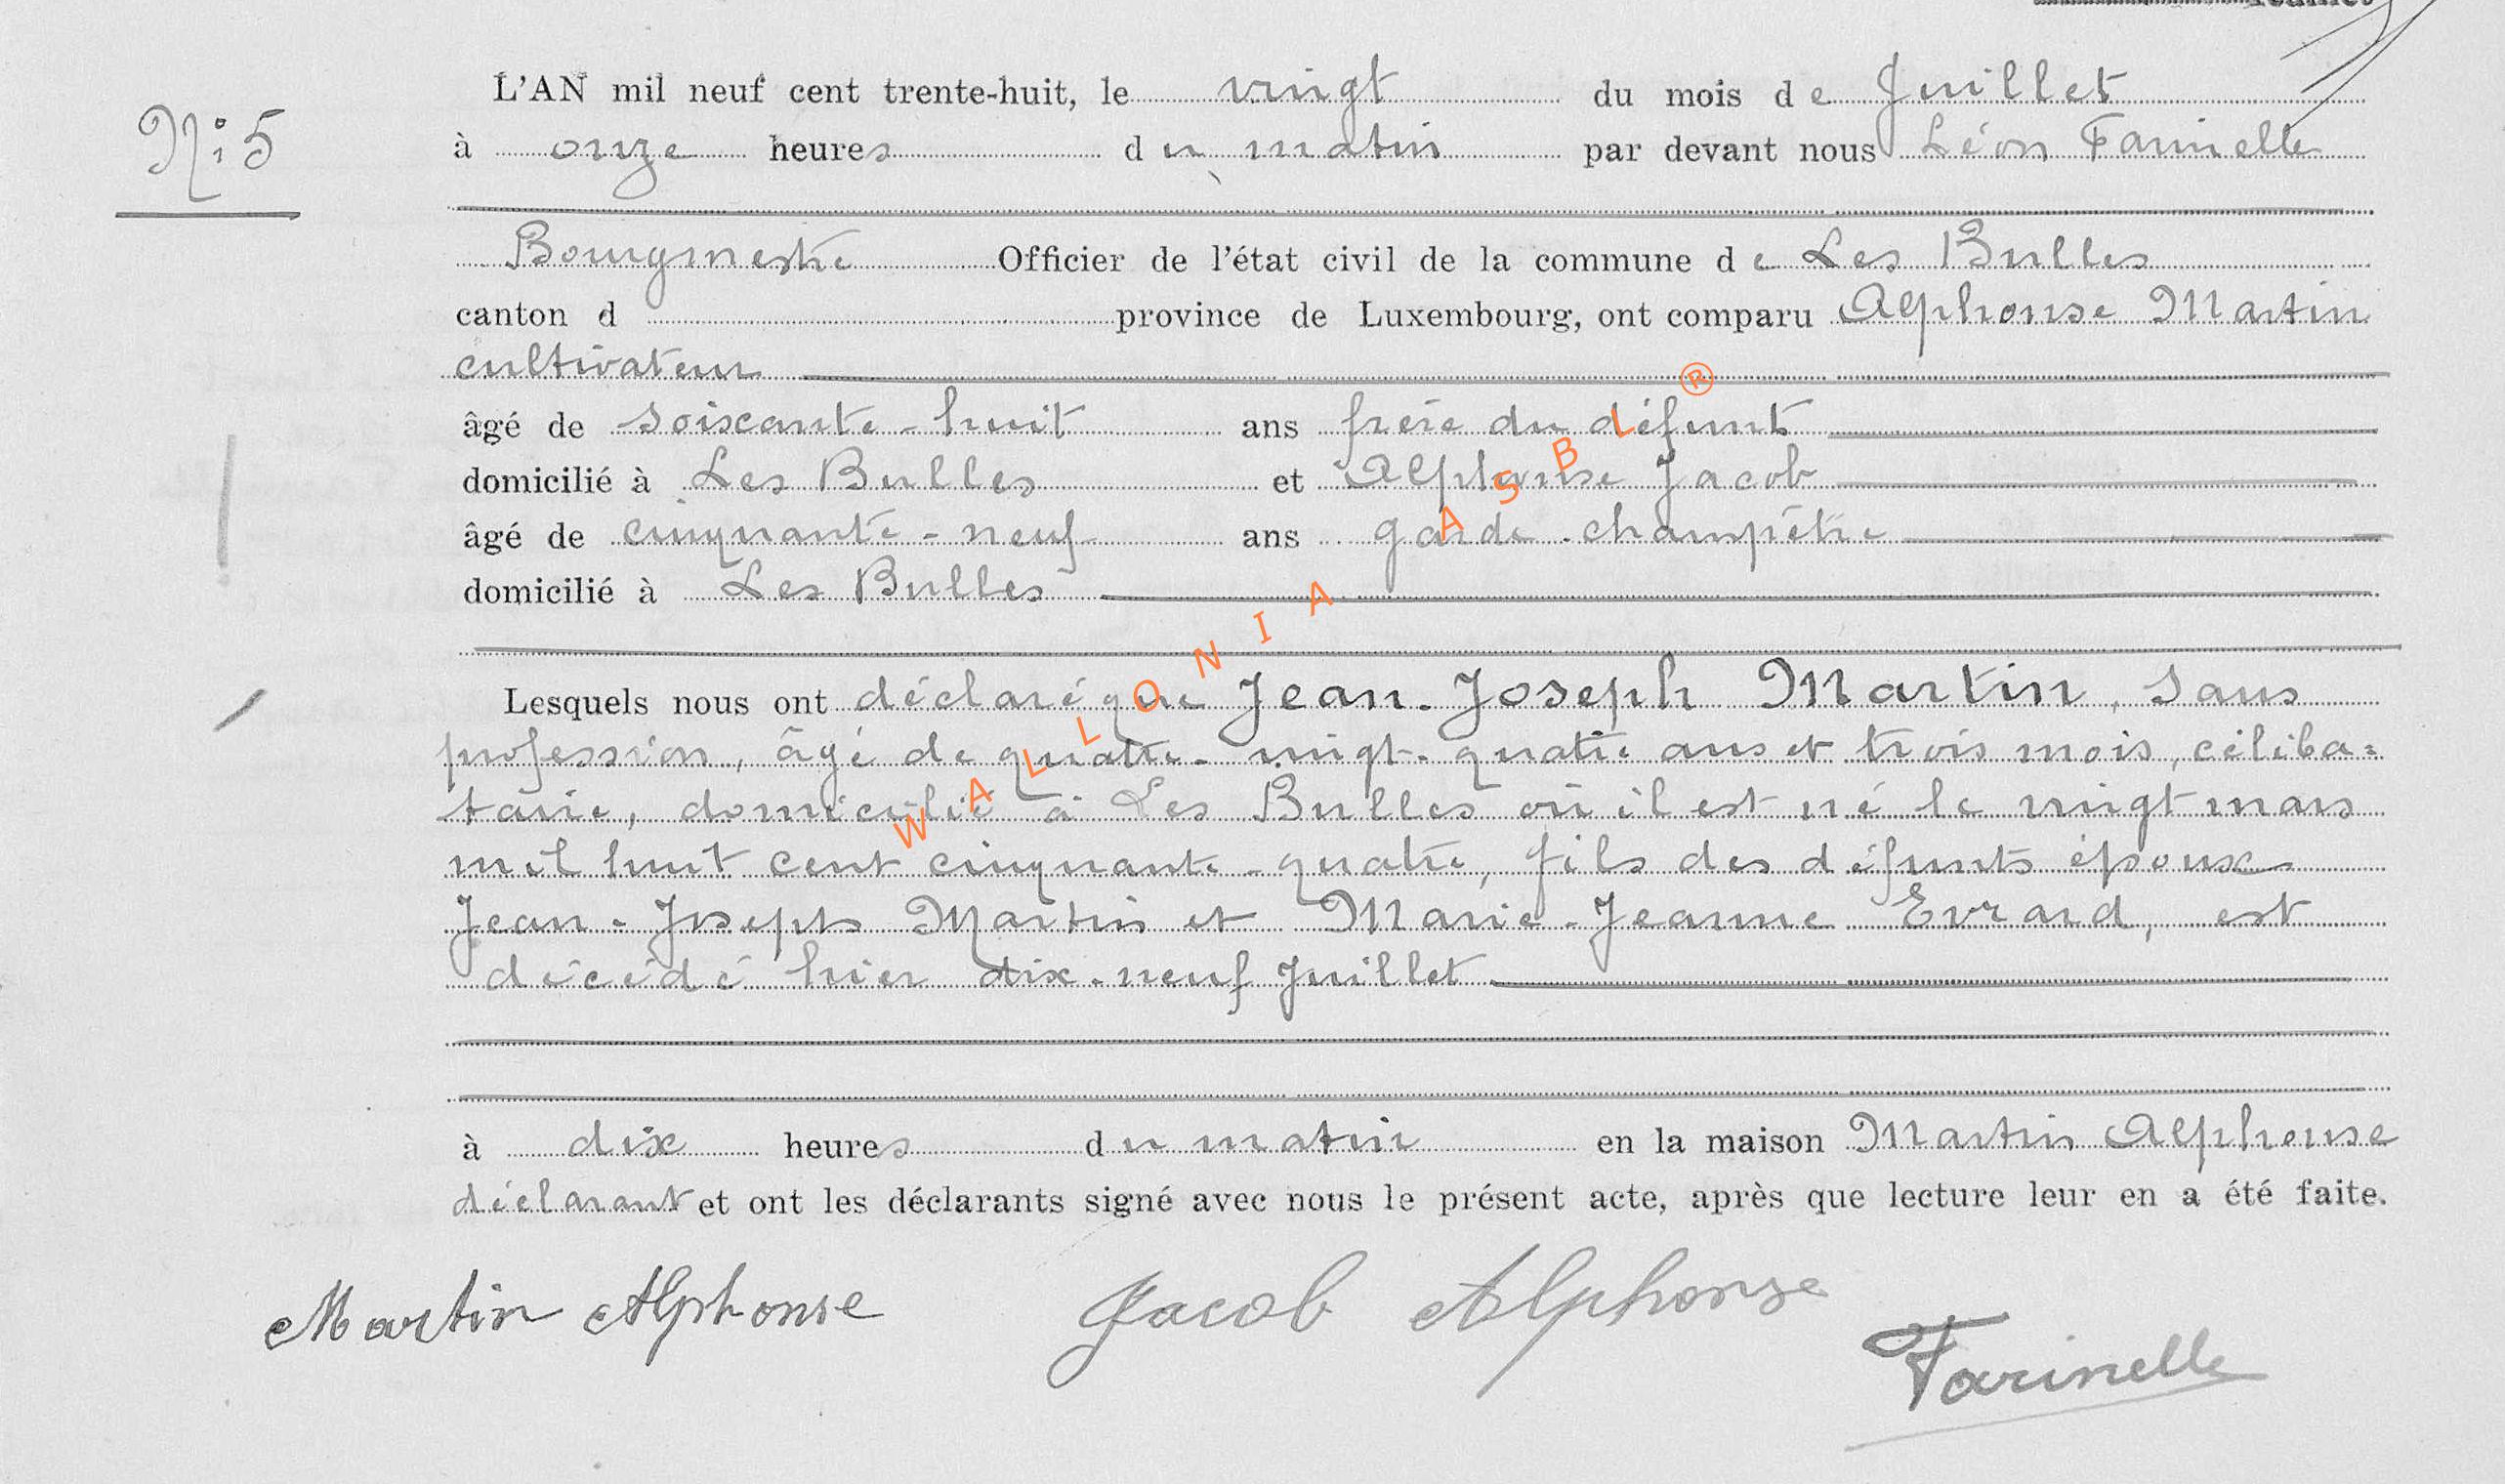 L'AN mil neuf cent trente-huit, le vingt du mois de Juillet
N° 5
à onze heures du matin par devant nous Léon Farinelle
Bourgmestre Officier de l'état civil de la commune de Les Bulles
canton d province de Luxembourg, ont comparu Alphonse Martin
cultivateur
âgé de soixante-huit ans frère du défunt
domicilié à Les Bulles et Alphonse Jacob
âgé de cinquante-neuf ans garde-champêtre
domicilié à Les Bulles
Lesquels nous ont déclaré que Jean-Joseph Martin, sans
profession, âgé de quatre-vingt-quatre ans et trois mois, céliba=
taire, domicilié à Les Bulles où il est né le vingt mars
mil huit cent cinquante-quatre, fils des défunts époux
Jean-Joseph Martin et Marie-Jeanne Evrard, est
décédé hier dix-neuf Juillet
à dix heures du matin en la maison Martin Alphonse
déclarant et ont les déclarants signé avec nous le présent acte, après que lecture leur en a été faite.
Martin Alphonse Jacob Alphonse
Farinelle
WALLONIA ASBL ®